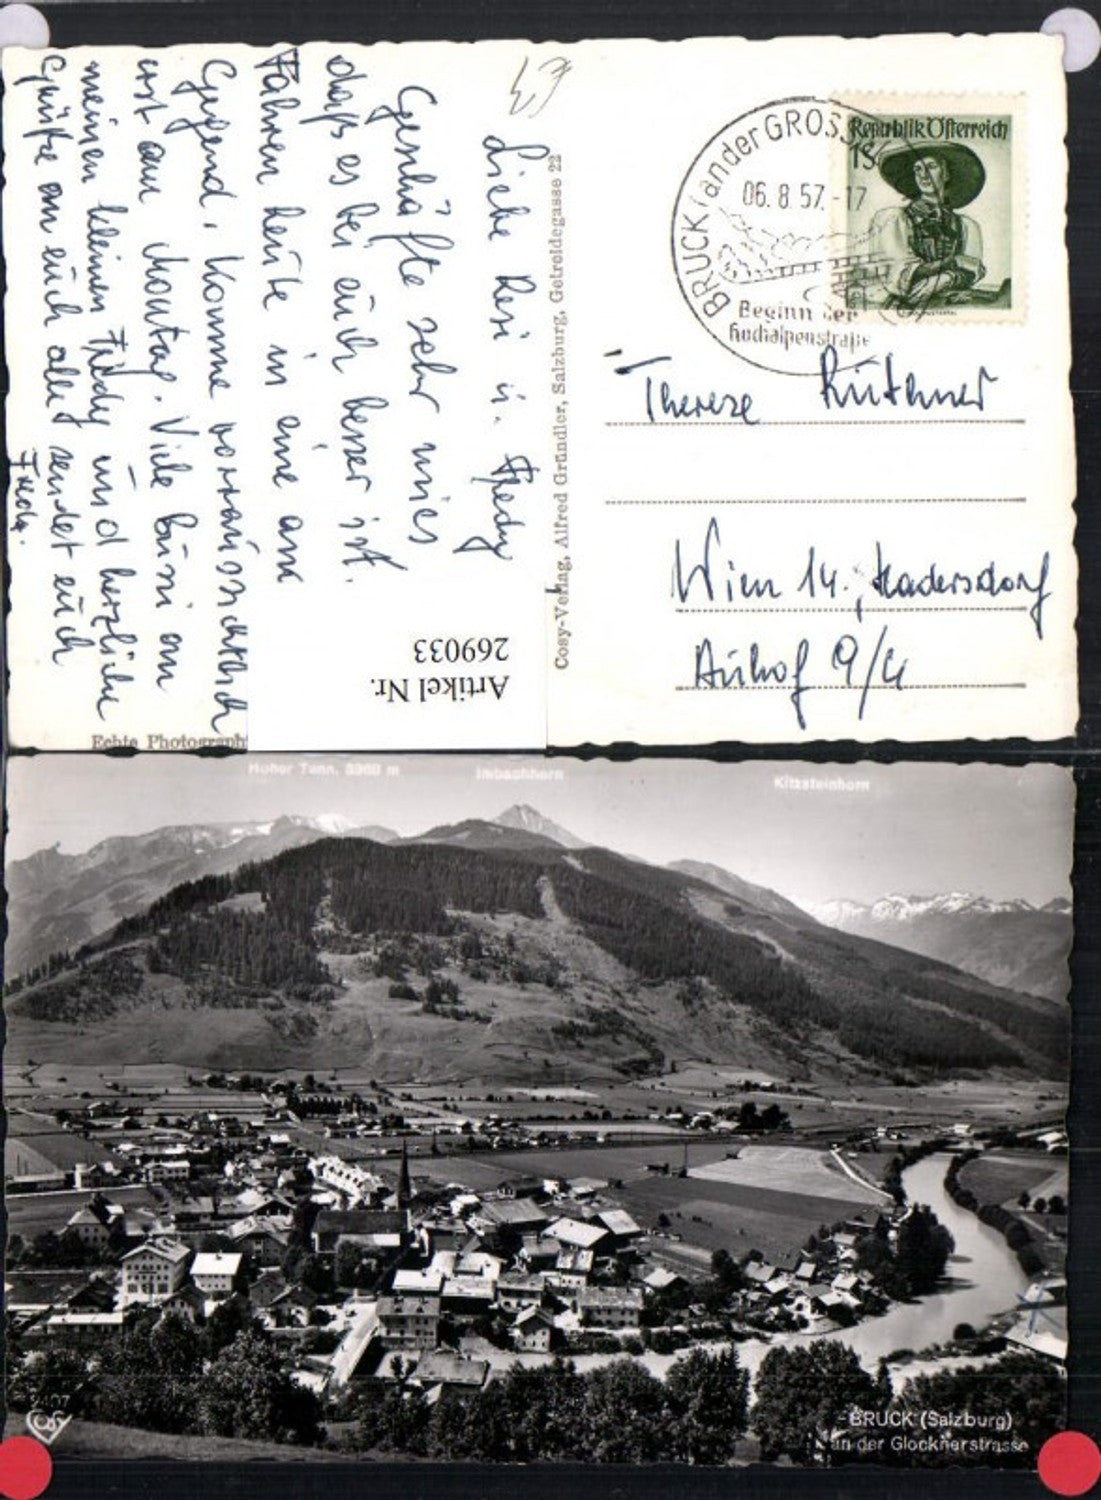 Liebe Resi u. Fredy
Genhäfte sehr mies
daß es bei euch besser ist.
Fahren heute in eine and
Gegend, komme voraussichtlich
erst am Montag. Viele Bussi an
meinen kleinen Fredy und herzliche
Grüße an euch alle sendet euch
Echte Photograph
Artikel Nr.
269033
Cosy-Verlag, Alfred Gründler, Salzburg, Getreidegasse 22
BRUCK an der GROSS
06.8.57.-17
Beginn der
Hochalpenstraße
Republik Österreich
1S
Therese Rüthner
Wien 14., Hadersdorf
Auhof 9/4
Hoher Tenn.
Imbachhorn
Kitzsteinhorn
Cosy
BRUCK (Salzburg)
an der Glocknerstrasse